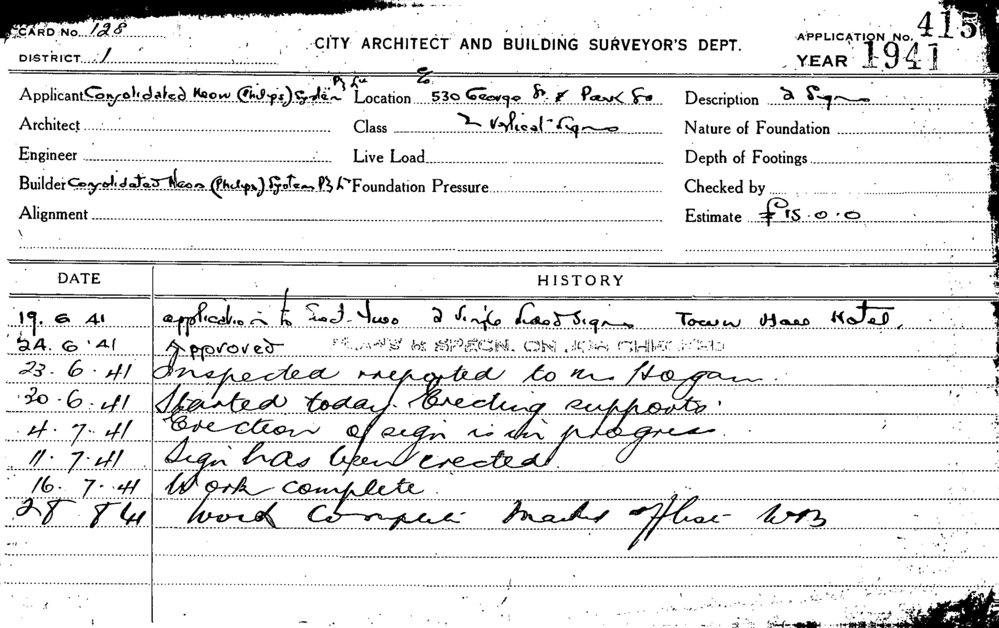 CARD No. 128
DISTRICT 1
CITY ARCHITECT AND BUILDING SURVEYOR'S DEPT.
APPLICATION No. 415
YEAR 1941
Applicant Consolidated Neon (Philips) System P/L Location c/o 530 George St & Park St Description 2 Signs
Architect Class 2 Vertical Signs Nature of Foundation
Engineer Live Load Depth of Footings
Builder Consolidated Neon (Philips) System P/L Foundation Pressure Checked by
Alignment Estimate £15.0.0
DATE HISTORY
19. 6 41 application to 2 Single Signs Town Hall Hotel.
24. 6 . 41 Approved PLANS & SPECN. ON JOB CHECKED
23 . 6 . 41 Inspected reported to Mr Hogan.
30 . 6 . 41 Started today. Erecting supports.
4 . 7 . 41 Erection of sign is in progress
11 . 7 . 41 Sign has been erected.
16 . 7 . 41 Work complete.
28 8 41 Work Complete Marked off list WB